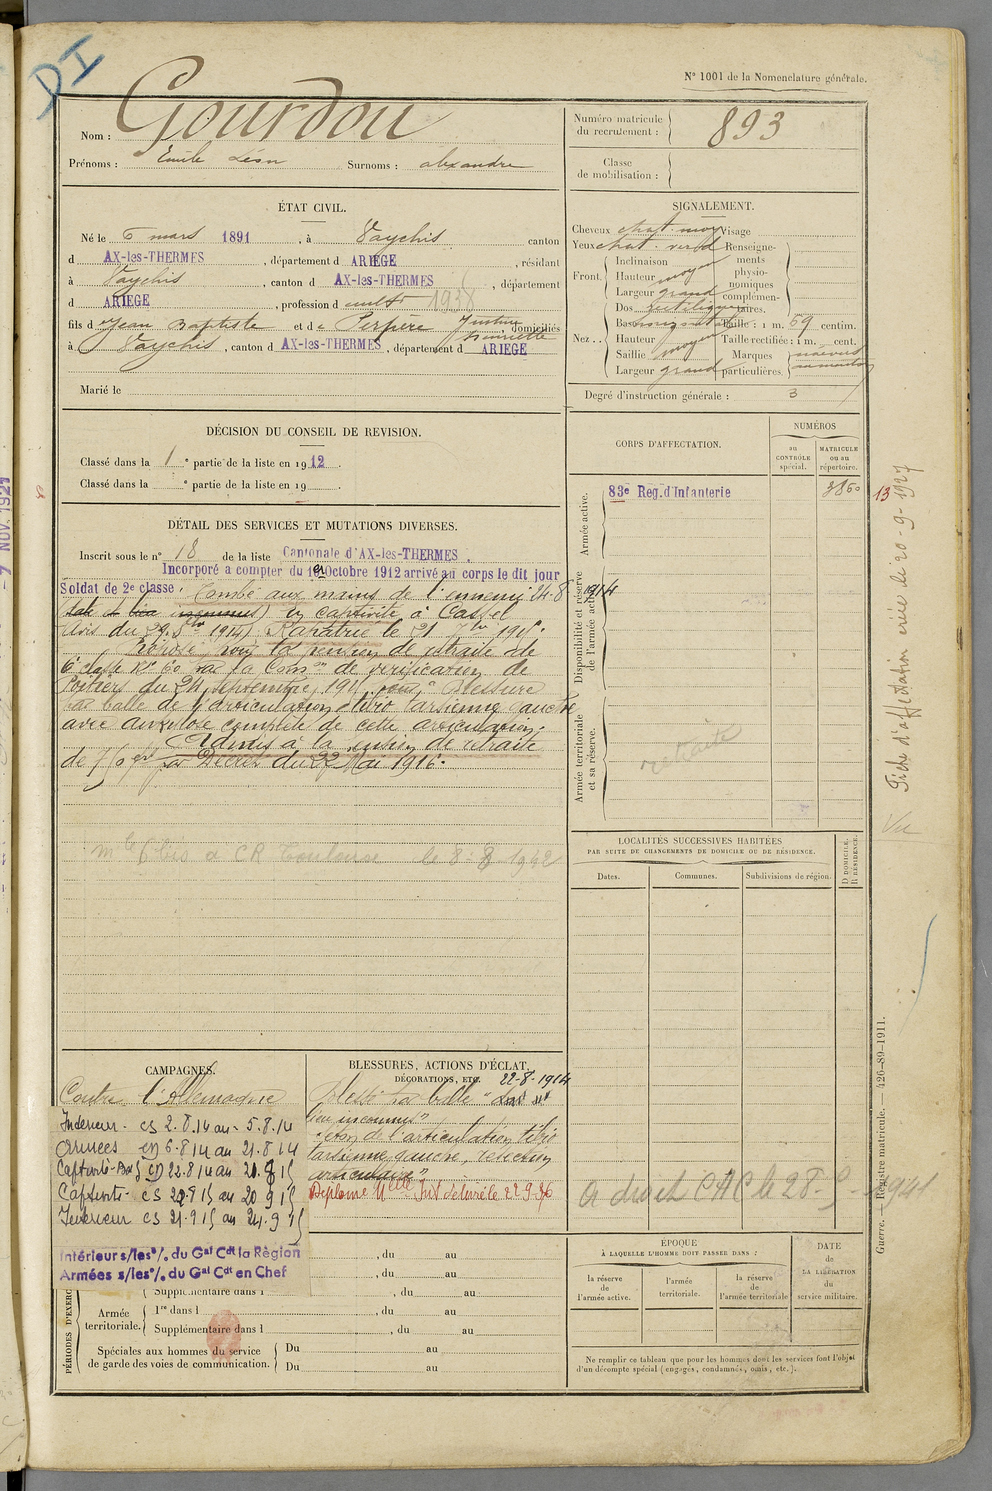 DI
N° 1001 de la Nomenclature générale.
Nom : Gourdou
Prénoms : Emile Léon Surnoms : alexandre
Numéro matricule du recrutement : 893
Classe de mobilisation :
ÉTAT CIVIL.
Né le 6 mars 1891, à Vaychis canton
d AX-les-THERMES, département d ARIEGE, résidant
à Vaychis, canton d AX-les-THERMES, département
d ARIEGE, profession d cultr 1938
fils d e Jean Baptiste et d e Perpère Justine Henriette domiciliés
à Vaychis, canton d AX-les-THERMES, département d ARIEGE
Marié le
SIGNALEMENT.
Cheveux chat. moy Visage
Yeux chat. verd Renseigne-
Front. Inclinaison ments
Hauteur moyen physio-
Largeur grand nomiques
complémen-
Nez .. Dos rectiligne taires.
Base horizontale Taille : 1 m. 59 centim.
Hauteur Taille rectifiée : 1 m. cent.
Saillie moyen Marques
Largeur grand particulières.
Degré d'instruction générale : 3
DÉCISION DU CONSEIL DE REVISION.
Classé dans la 1 e partie de la liste en 1912.
Classé dans la e partie de la liste en 19
DÉTAIL DES SERVICES ET MUTATIONS DIVERSES.
Inscrit sous le n° 18 de la liste Cantonale d'AX-les-THERMES.
Incorporé a compter du 1er Octobre 1912 arrivé au corps le dit jour
Soldat de 2e classe. Tombé aux mains de l'ennemi 24-8-1914
(date et lieu inconnus) en captivité à Cassel
(avis du 29 1914) Rapatrié le 21 7bre 1915.
Proposé pour la pension de retraite de
6e classe N° 60 par la Comon de vérification de
Poitiers du 24 septembre 191 pour "Blessure
par balle de l'articulation tibio tarsienne gauche
avec ankylose complète de cette articulation.
Admis à la pension de retraite
de par Décret du 22 Mai 1916.
mle 6 bis a CR Toulouse le 8-8-1942
CORPS D'AFFECTATION.
NUMÉROS
au CONTRÔLE spécial.
MATRICULE ou au répertoire.
Armée active.
83e Reg. d'Infanterie 3850
13
Disponibilité et réserve de l'armée active.
Armée territoriale et sa réserve.
retraité
Fiche d'affectation créée le 20-9-1927
Vu
7 NOV. 1921
LOCALITÉS SUCCESSIVES HABITÉES
PAR SUITE DE CHANGEMENTS DE DOMICILE OU DE RÉSIDENCE.
Dates. Communes. Subdivisions de région. D DOMICILE. R RÉSIDENCE.
CAMPAGNES.
Contre l'Allemagne
Intérieur - CS 2.8.14 au - 5.8.14
Armées en 6.8.14 au 21.8.14
Captivité en 22.8.14 au 20.9.15
Intérieur CS 21.9.15 au 24.9.15
Intérieur s/les o/. du Gal Cdt la Région
Armées s/les o/. du Gal Cdt en Chef
BLESSURES, ACTIONS D'ÉCLAT,
DÉCORATIONS, ETC. 22-8-1914
Blessé par balle
lieu inconnus"
de l'articulation tibio
tarsienne gauche, résection
articulaire"
Diplome délivré le 22.9.36
a droit CAC le 28 1941
, du au
, du au
Supplémentaire dans l , du au
Armée territoriale. 1re dans l , du au
Supplémentaire dans l , du au
Spéciales aux hommes du service de garde des voies de communication. Du au
Du au
PÉRIODES D'EXERC
ÉPOQUE
À LAQUELLE L'HOMME DOIT PASSER DANS :
la réserve de l'armée active.
l'armée territoriale.
la réserve de l'armée territoriale
DATE de LA LIBÉRATION du service militaire.
Ne remplir ce tableau que pour les hommes dont les services font l'objet
d'un décompte spécial (engagés, condamnés, omis, etc.).
Guerre. — Registre matricule. — 426-89-1911.